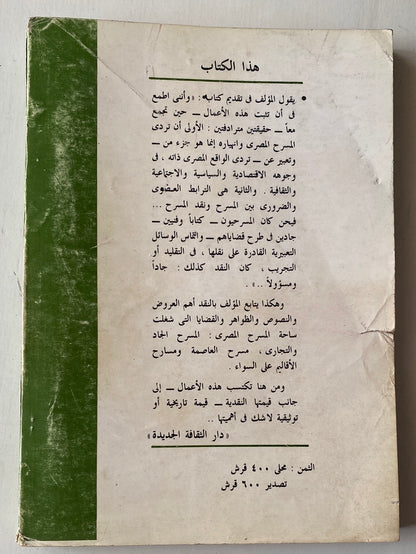 هذا الكتاب
• يقول المؤلف فى تقديم كتابه : «وأننى اطمع
فى أن تثبت هذه الأعمال ــ حين تجمع
معاً ــ حقيقتين مترادفتين : الأولى أن تردى
المسرح المصرى وانهياره إنما هو جزء من ــ
وتعبير عن ــ تردى الواقع المصرى ذاته ، فى
وجوهه الاقتصادية والسياسية والاجتماعية
والثقافية . والثانية هى الترابط العضوى
والضرورى بين المسرح ونقد المسرح ...
فيحن كان المسرحيون ــ كتاباً وفنيين ــ
جادين فى طرح قضاياهم ــ والتماس الوسائل
التعبيرية القادرة على نقلها ، فى التقليد أو
التجريب ، كان النقد كذلك : جاداً
ومسؤولاً .. » .
وهكذا يتابع المؤلف بالنقد أهم العروض
والنصوص والظواهر والقضايا التى شغلت
ساحة المسرح المصرى : المسرح الجاد
والتجارى ، مسرح العاصمة ومسارح
الأقاليم على السواء .
ومن هنا تكتسب هذه الأعمال ــ إلى
جانب قيمتها النقدية ــ قيمة تاريخية أو
توثيقية لاشك فى أهميتها ..
«دار الثقافة الجديدة»
الثمن : محلى ٤٠٠ قرش
تصدير ٦٠٠ قرش